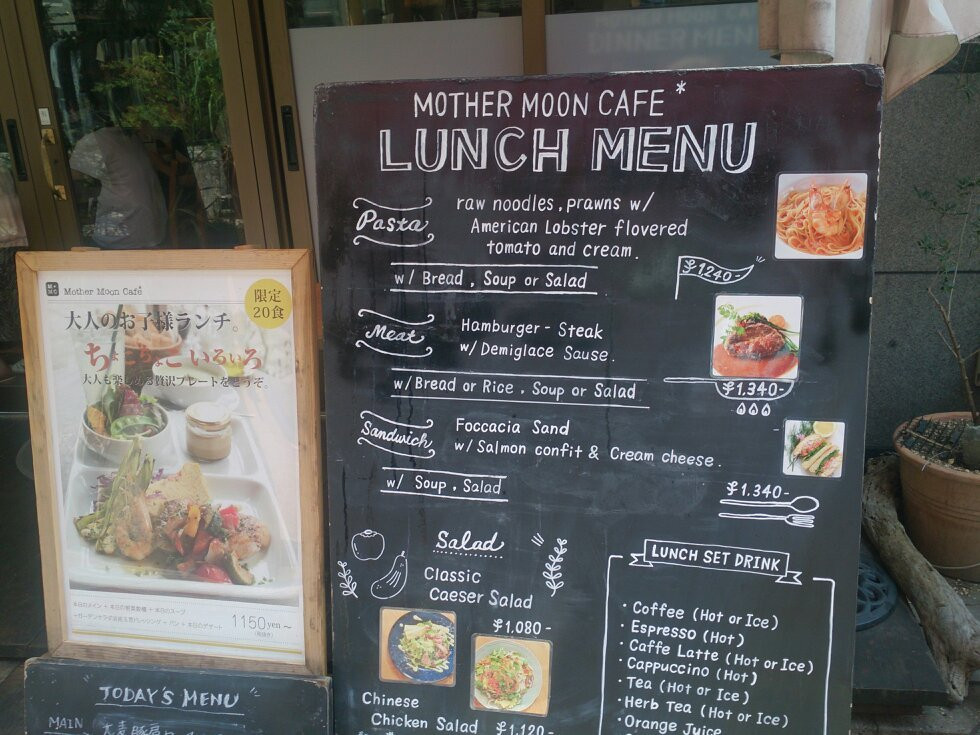 MOTHER MOON CAFE*
LUNCH MENU
Pasta
raw noodles, prawns w/
American Lobster flovered
tomato and cream.
w/ Bread, Soup or Salad
¥1240-
Meat
Hamburger-Steak
w/Demiglace Sause.
w/Bread or Rice, Soup or Salad
¥1.340-
Sandwich
Foccacia Sand
w/Salmon confit & Cream cheese.
w/ Soup, Salad
¥1.340-
Salad
Classic
Caeser Salad
¥1.080-
Chinese
Chicken Salad
¥1.120-
LUNCH SET DRINK
・Coffee (Hot or Ice)
・Espresso (Hot)
・Caffe Latte (Hot or Ice)
・Cappuccino (Hot)
・Tea (Hot or Ice)
・Herb Tea (Hot or Ice)
・Orange Juice
Mother Moon Café
限定
20食
大人のお子様ランチ。
いろいろ
1150yen~
TODAY'S MENU
MAIN
DINNER MENU